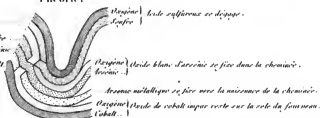 Oxigène
Soufre
Acide sulfureux se dégage.
Oxigène
Arsénic..
Oxide blanc d'arsénic se fixe dans la cheminée.
Arsenic métallique se fixe vers la naissance de la cheminée.
Oxigène
Cobalt..
Oxide de cobalt impur reste sur la sole du fourneau.